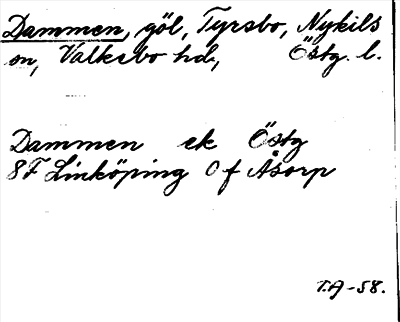 Dammen, göl, Tyrsbo, Nykils
sn, Valkebo hd, Östg. l.
Dammen ek Östg
8F Linköping 0 f Åsorp
T.A -58.